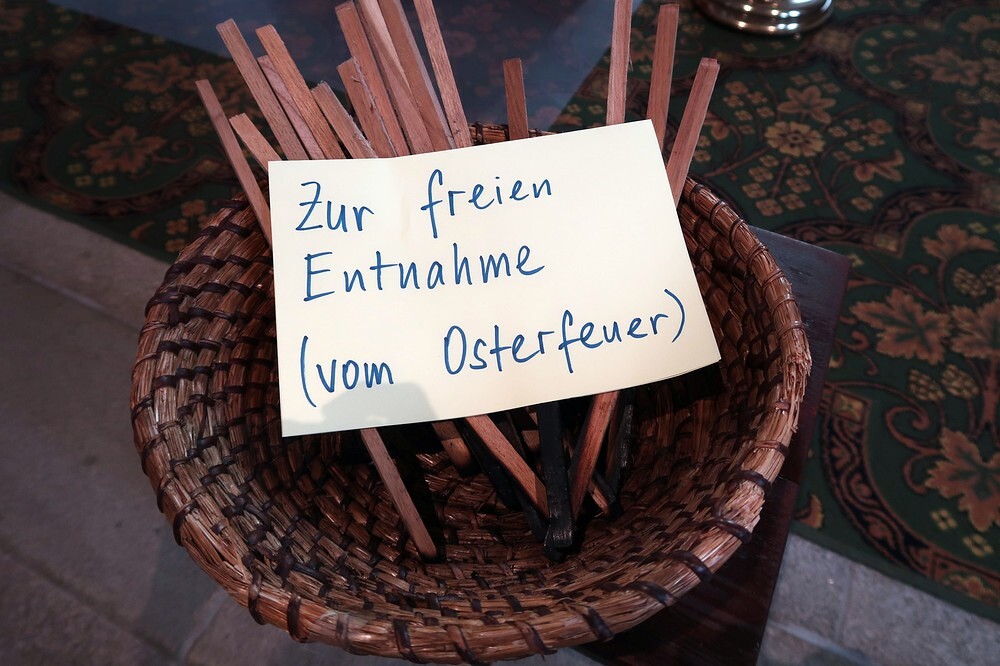 Zur freien
Entnahme
(vom Osterfeuer)